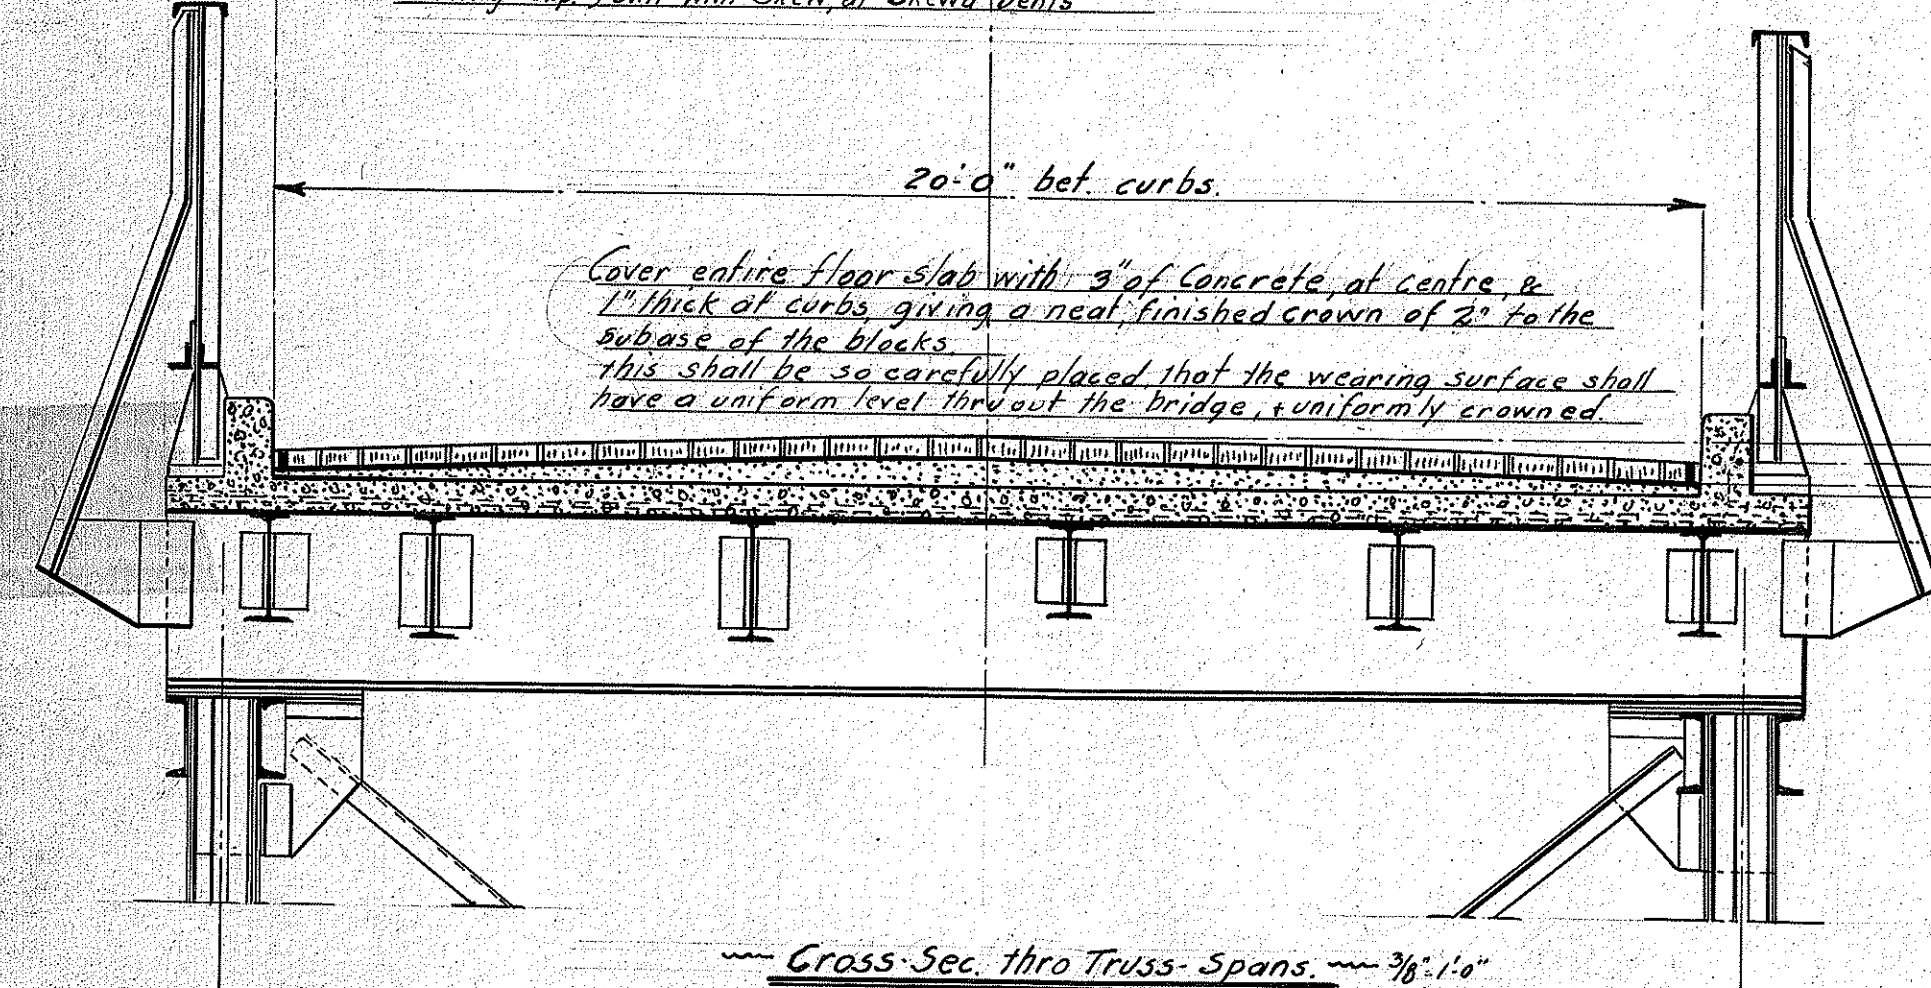 Exp. Joint with Skew, at Skewd Bents
20'-0" bet. curbs.
Cover entire floor slab with 3" of Concrete, at centre, &
1" thick at curbs, giving a neat, finished crown of 2" to the
subase of the blocks.
this shall be so carefully placed, that the wearing surface shall
have a uniform level thruout the bridge, + uniformly crowned.
Cross-Sec. thro Truss-Spans. 3/8"-1'-0"